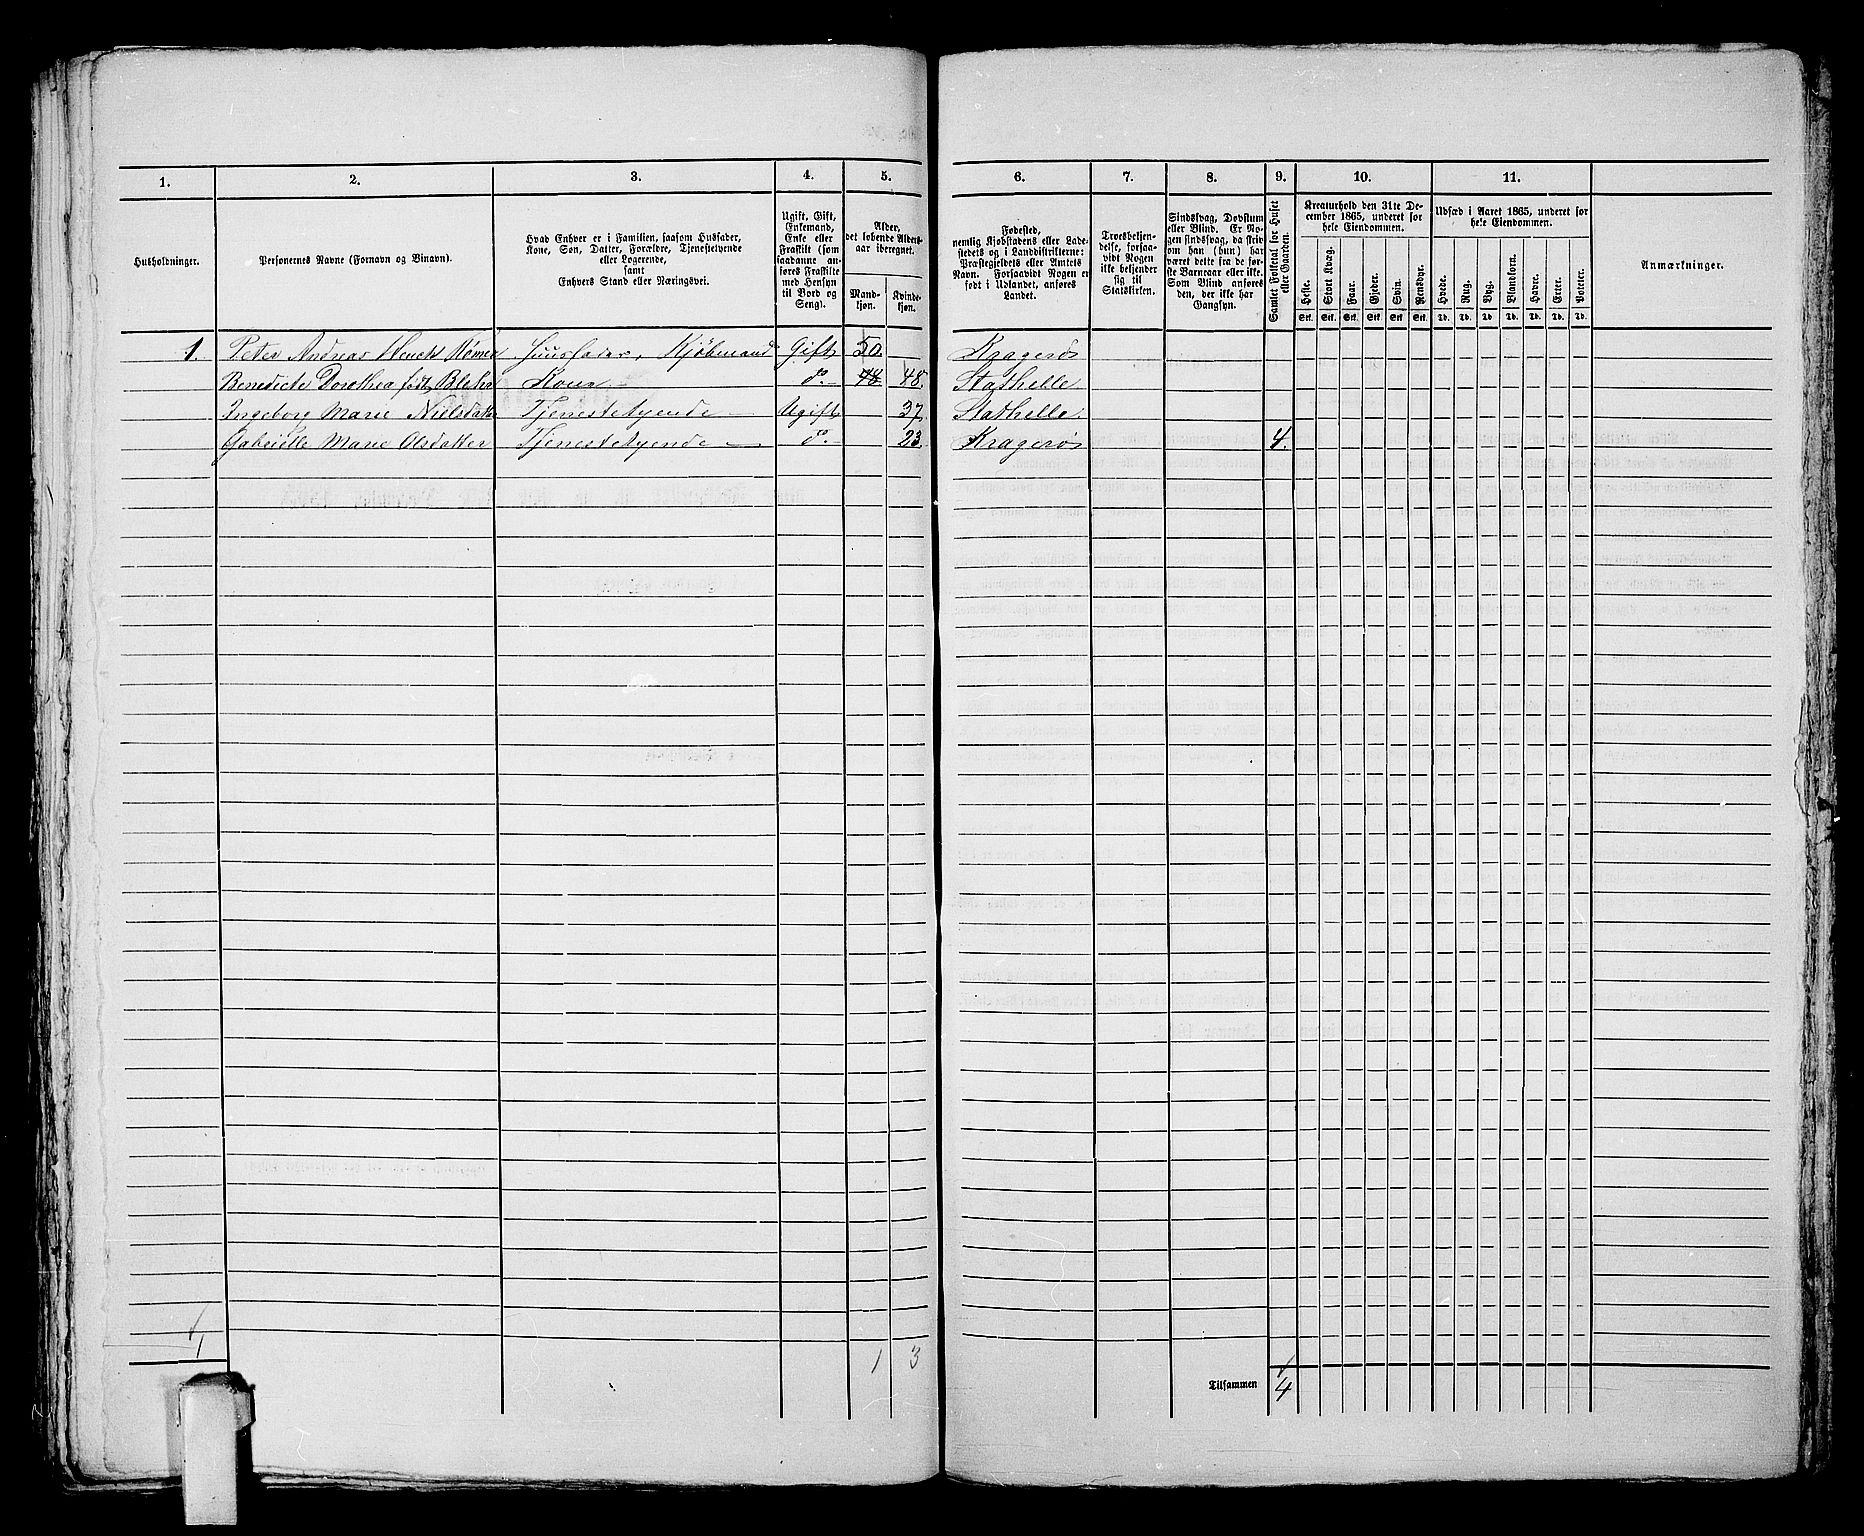 1.
2.
3.
4.
5.
6.
7.
8.
9.
10.
11.
Husholdninger.
Personernes Navne (Fornavn og Binavn).
Hvad Enhver er i Familien, saasom Husfader,
Kone, Søn, Datter, Forældre, Tjenestetyende
eller Logerende,
samt
Enhvers Stand eller Næringsvei.
Ugift, Gift,
Enkemand,
Enke eller
Fraskilt (som
saadanne an-
føres Fraskilte
med Hensyn
til Bord og
Seng).
Alder,
det løbende Alders-
aar iberegnet.
Mand-
kjøn.
Kvinde-
kjøn.
Fødested,
nemlig Kjøbstadens eller Lade-
stedets og i Landdistrikterne:
Præstegjeldets eller Amtets
Navn. Forsaavidt Nogen er
født i Udlandet, anføres
Landet.
Troesbekjen-
delse, forsaa-
vidt Nogen
ikke bekjender
sig til
Statskirken.
Sindssvag, Døvstum
eller Blind. Er No-
gen sindssvag, da skriv
om han (hun) har
været dette fra de før-
ste Barneaar eller ikke.
Som Blind anføres
den, der ikke har
Gangsyn.
Samlet Folketal for Huset
eller Gaarden.
Kreaturhold den 31te De-
cember 1865, underet for
hele Eiendommen.
Heste.
Stort Kvæg.
Faar.
Gjeder.
Svin.
Rensdyr.
Stk. Stk. Stk. Stk. Stk. Stk.
Udsæd i Aaret 1865, underet for
hele Eiendommen.
Hvede.
Rug.
Byg.
Blandkorn.
Havre.
Erter.
Poteter.
Td. Td. Td. Td. Td. Td. Td.
Anmærkninger.
1. Peter Andreas Heuch Hømer Huusfader, Kjøbmand Gift 50. Kragerø
Benedicte Dorothea født Kone do.- 48 48. Stathelle
Ingeborg Marie Nielsdatter Tjenestetyende Ugift 37. Stathelle
Gabrielle Marie Olsdatter Tjenestetyende do.- 23. Kragerø 4.
1
1 3
Tilsammen 4